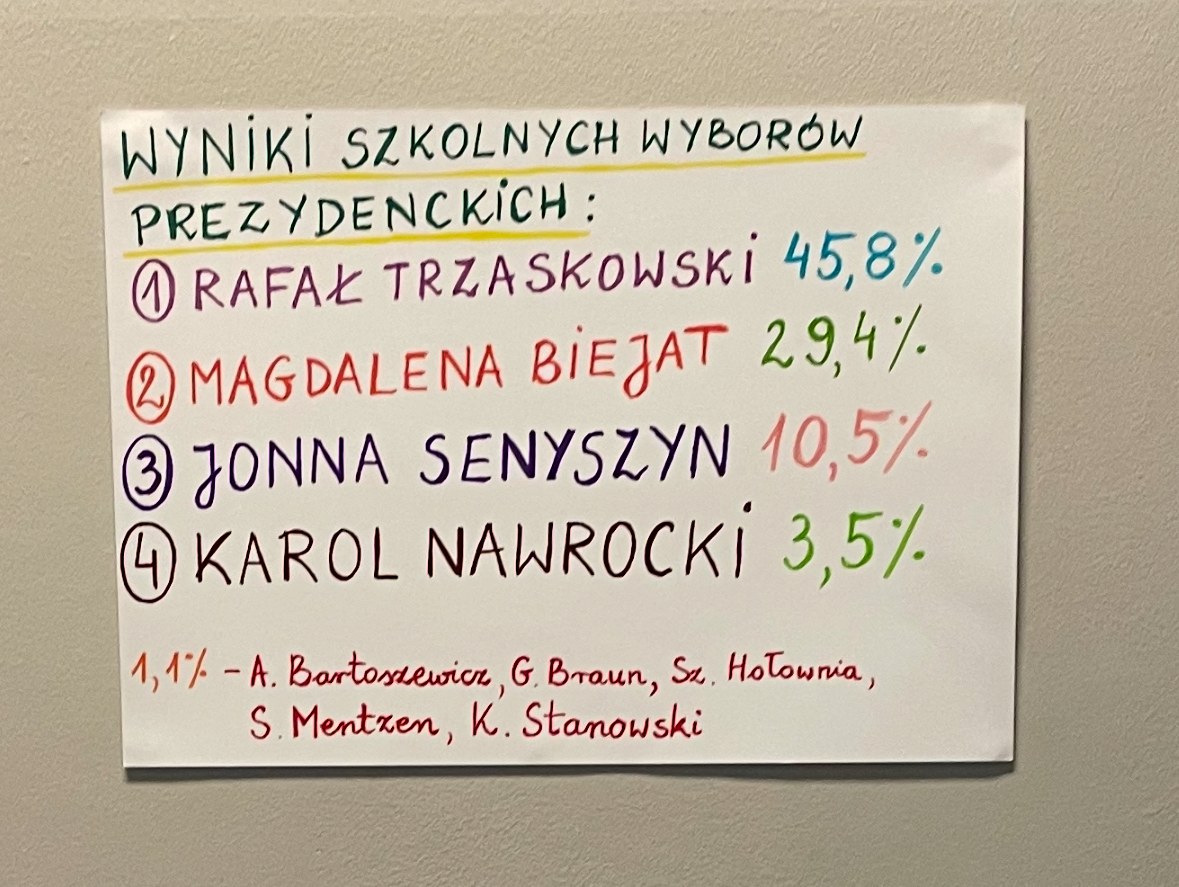 WYNIKI SZKOLNYCH WYBORÓW
PREZYDENCKICH:
1 RAFAŁ TRZASKOWSKI 45,8%
2 MAGDALENA BIEJAT 29,4%
3 JONNA SENYSZYN 10,5%
4 KAROL NAWROCKI 3,5%
1,1% - A. Bartoszewicz, G. Braun, Sz. Hołownia,
S. Mentzen, K. Stanowski